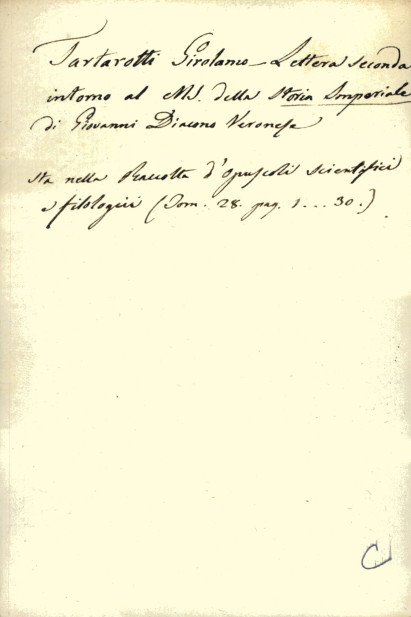 Tartarotti Girolamo - Lettera seconda
intorno al MS. della Storia Imperiale
di Giovanni Diacono Veronese
sta nella Raccolta d'opuscoli scientifici
e filologici (Tom. 28. pag. 1 ... 30.)
C